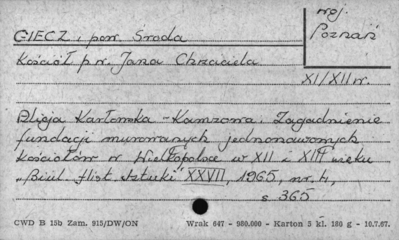 GIECZ, pow. Środa
woj. Poznań
Kościół p.w. Jana Chrzciciela
XI/XII w.
Alicja Karłowska-Kamzowa, Zagadnienie
fundacji murowanych jednonawowych
kościołów w Wielkopolsce w XII i XIII wieku
„Biul. Hist. Sztuki" XXVII, 1965, nr. 4,
s 365
CWD B 15b Zam. 915/DW/ON Wrak 647 - 980,000 - Karton 5 kl. 180 g - 10.7.67.